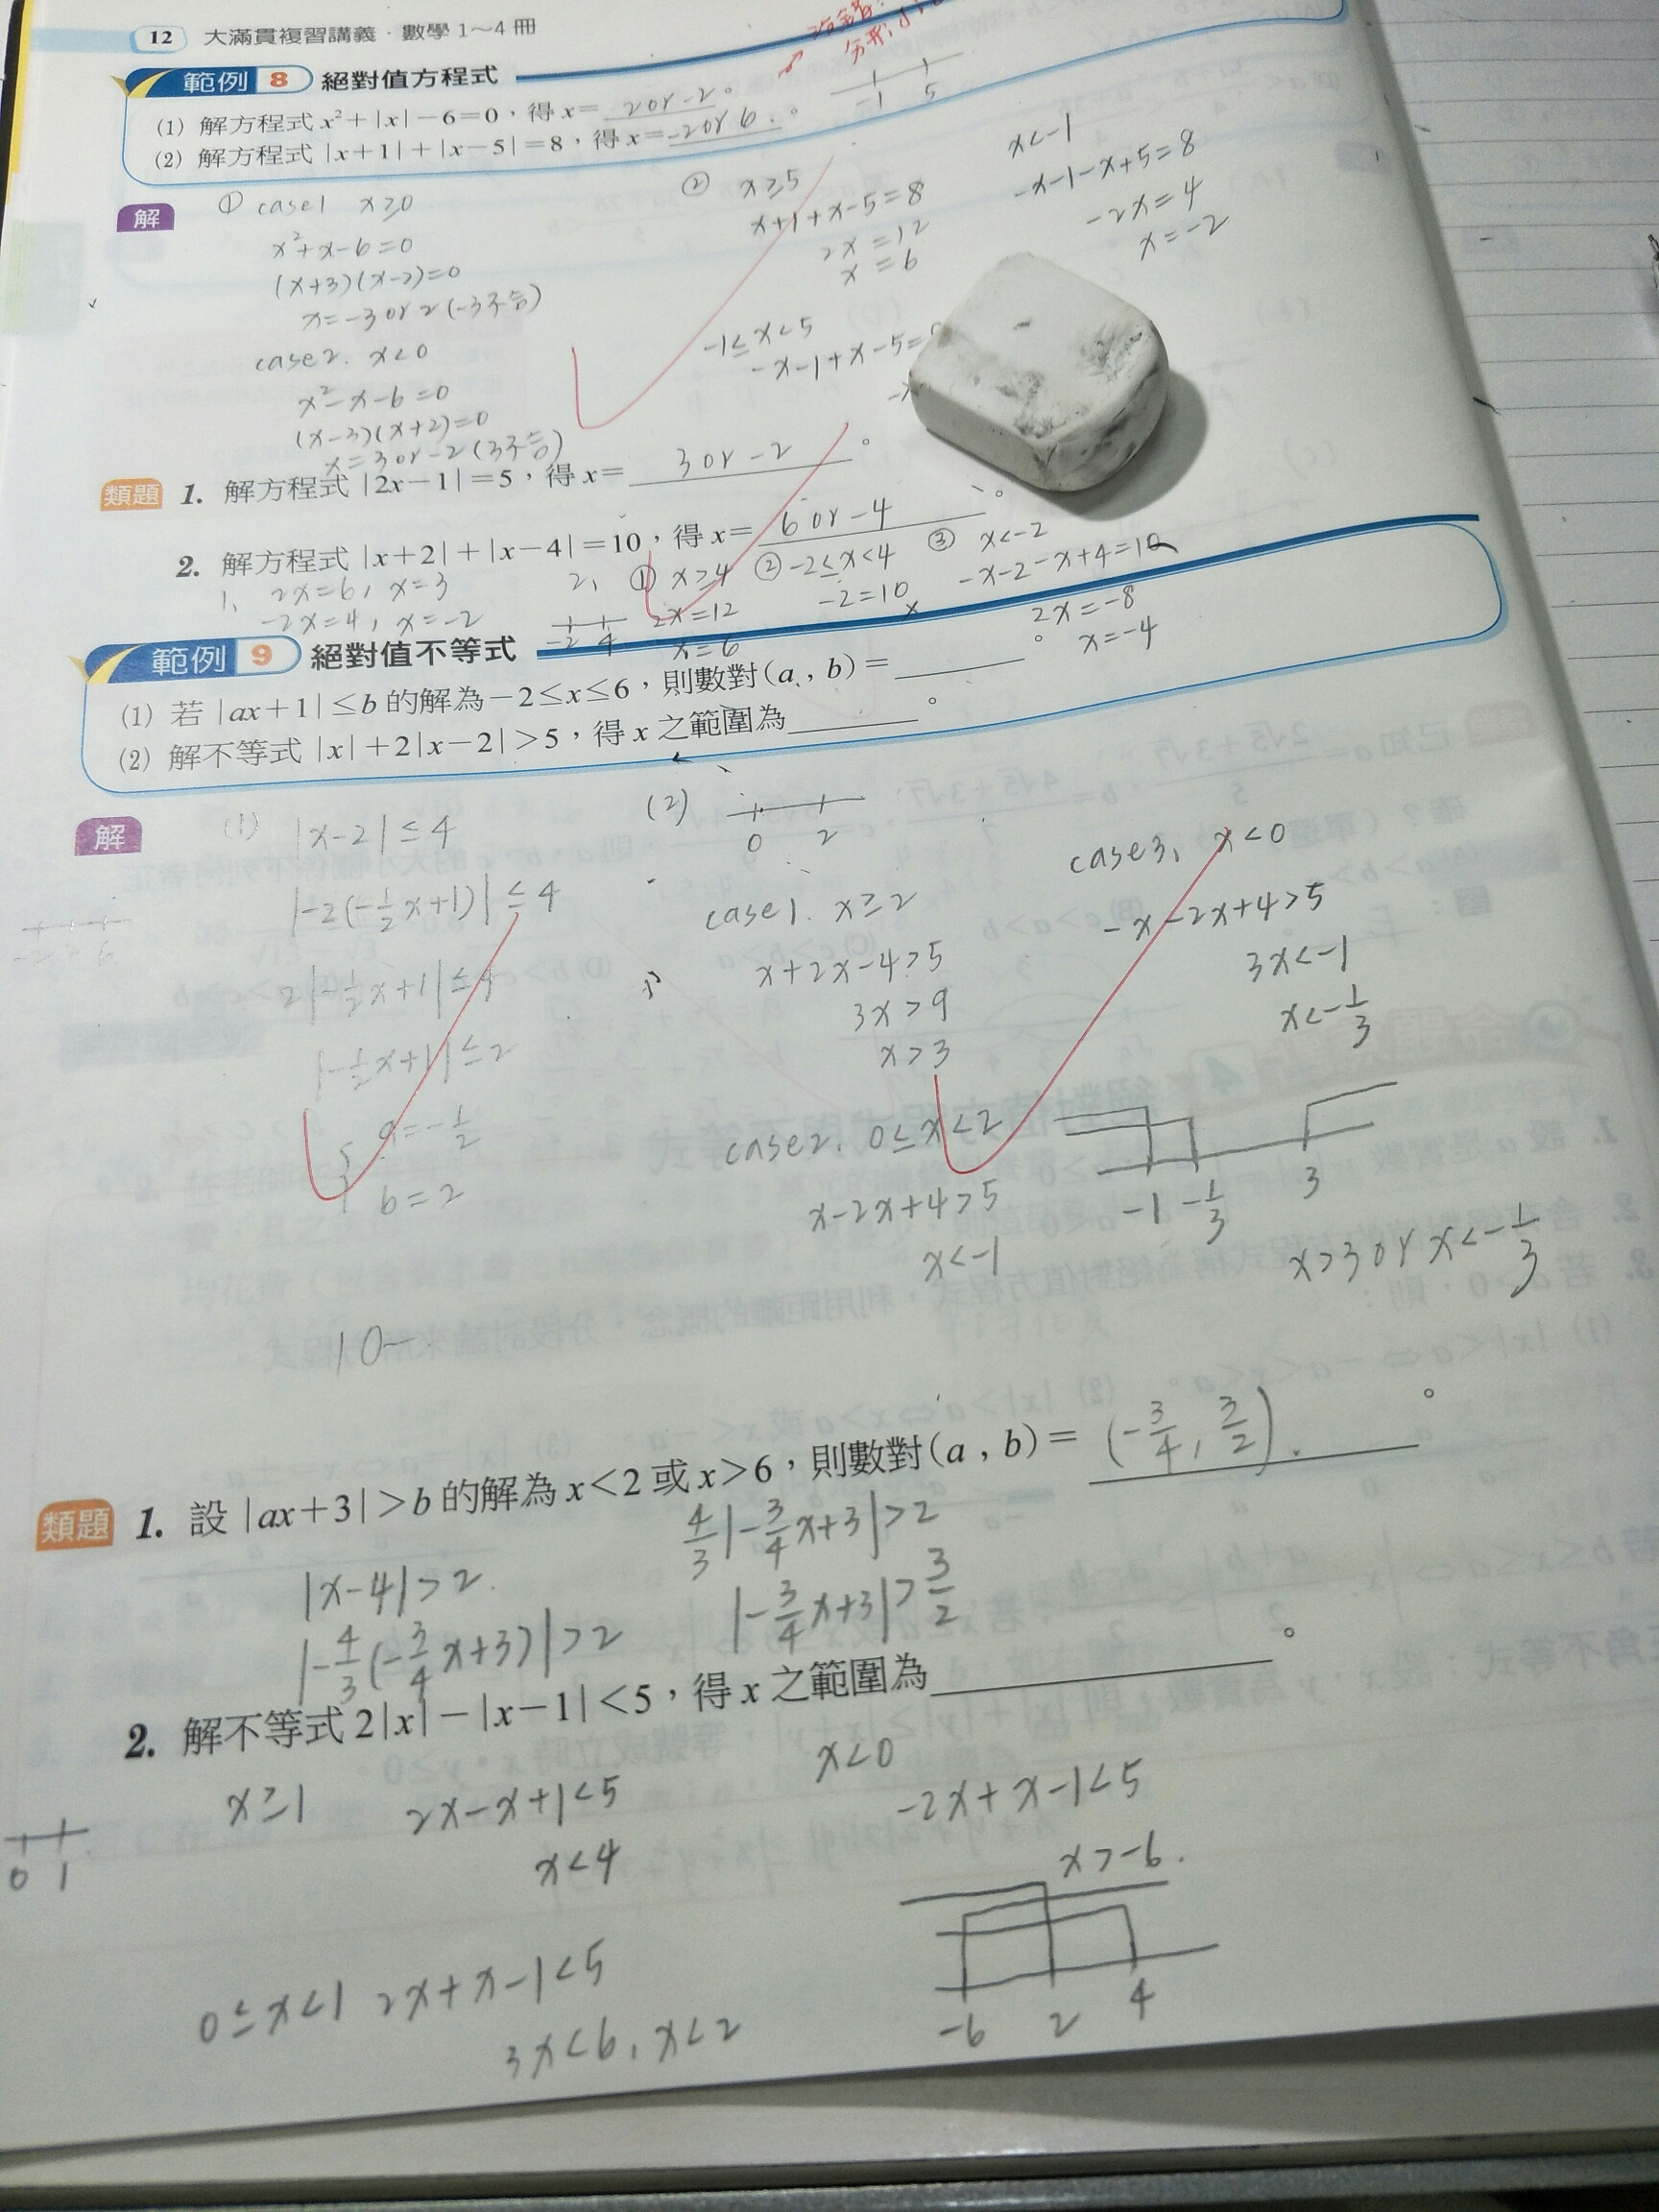 12 大滿貫複習講義．數學 1～4 冊
範例 8 絕對值方程式
(1) 解方程式 x²+|x|−6=0，得 x= 2 or −2 。
(2) 解方程式 |x+1|+|x−5|=8，得 x= −2 or 6. 。
−1 5
解
① case1 x≥0
x²+x−6=0
(x+3)(x−2)=0
x=−3 or 2 (−3不合)
case2. x<0
x²−x−6=0
(x−3)(x+2)=0
x=3 or −2 (3不合)
② x≥5
x+1+x−5=8
2x=12
x=6
−1≤x<5
−x−1+x−5=
x<−1
−x−1−x+5=8
−2x=4
x=−2
類題 1. 解方程式 |2x−1|=5，得 x= 3 or −2 。
2. 解方程式 |x+2|+|x−4|=10，得 x= 6 or −4 。
1. 2x=6, x=3
−2x=4, x=−2
2.
−2 4
① x≥4
2x=12
x=6
② −2≤x<4
−2=10
x
③ x<−2
−x−2−x+4=10
2x=−8
x=−4
範例 9 絕對值不等式
(1) 若 |ax+1|≤b 的解為 −2≤x≤6，則數對(a , b)= 。
(2) 解不等式 |x|+2|x−2|>5，得 x 之範圍為 。
解
(1) |x−2|≤4
|−2(−1/2x+1)|≤4
2|−1/2x+1|≤4
|−1/2x+1|≤2
a=−1/2
b=2
−2 2 6
(2)
0 2
case1. x≥2
x+2x−4>5
3x>9
x>3
case2. 0≤x<2
x−2x+4>5
x<−1
case3. x<0
−x−2x+4>5
3x<−1
x<−1/3
−1 −1/3 3
x>3 or x<−1/3
10−
類題 1. 設 |ax+3|>b 的解為 x<2 或 x>6，則數對(a , b)= (−3/4, 3/2). 。
|x−4|>2
|−4/3(−3/4x+3)|>2
4/3|−3/4x+3|>2
|−3/4x+3|>3/2
2. 解不等式 2|x|−|x−1|<5，得 x 之範圍為 。
0 1
x≥1 2x−x+1<5
x<4
0≤x<1 2x+x−1<5
3x<6, x<2
x<0
−2x+x−1<5
x>−6.
−6 2 4